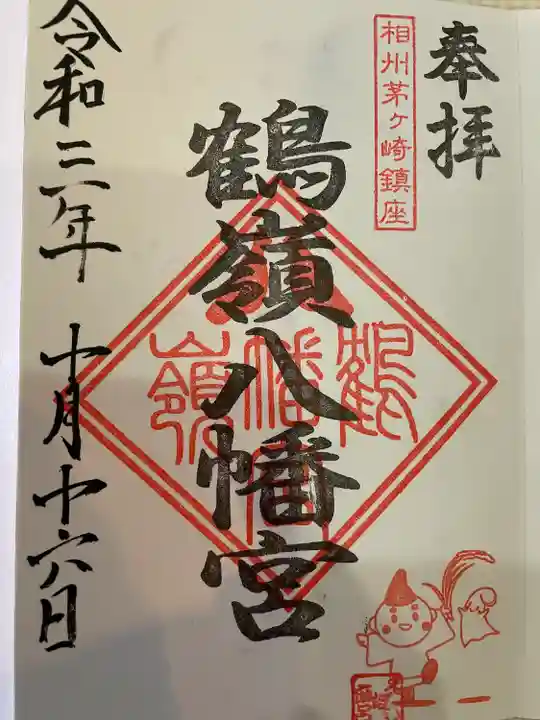 奉拝
相州茅ヶ崎鎮座
鶴嶺八幡宮
鶴
八幡宮
嶺
令和三年 十月十六日